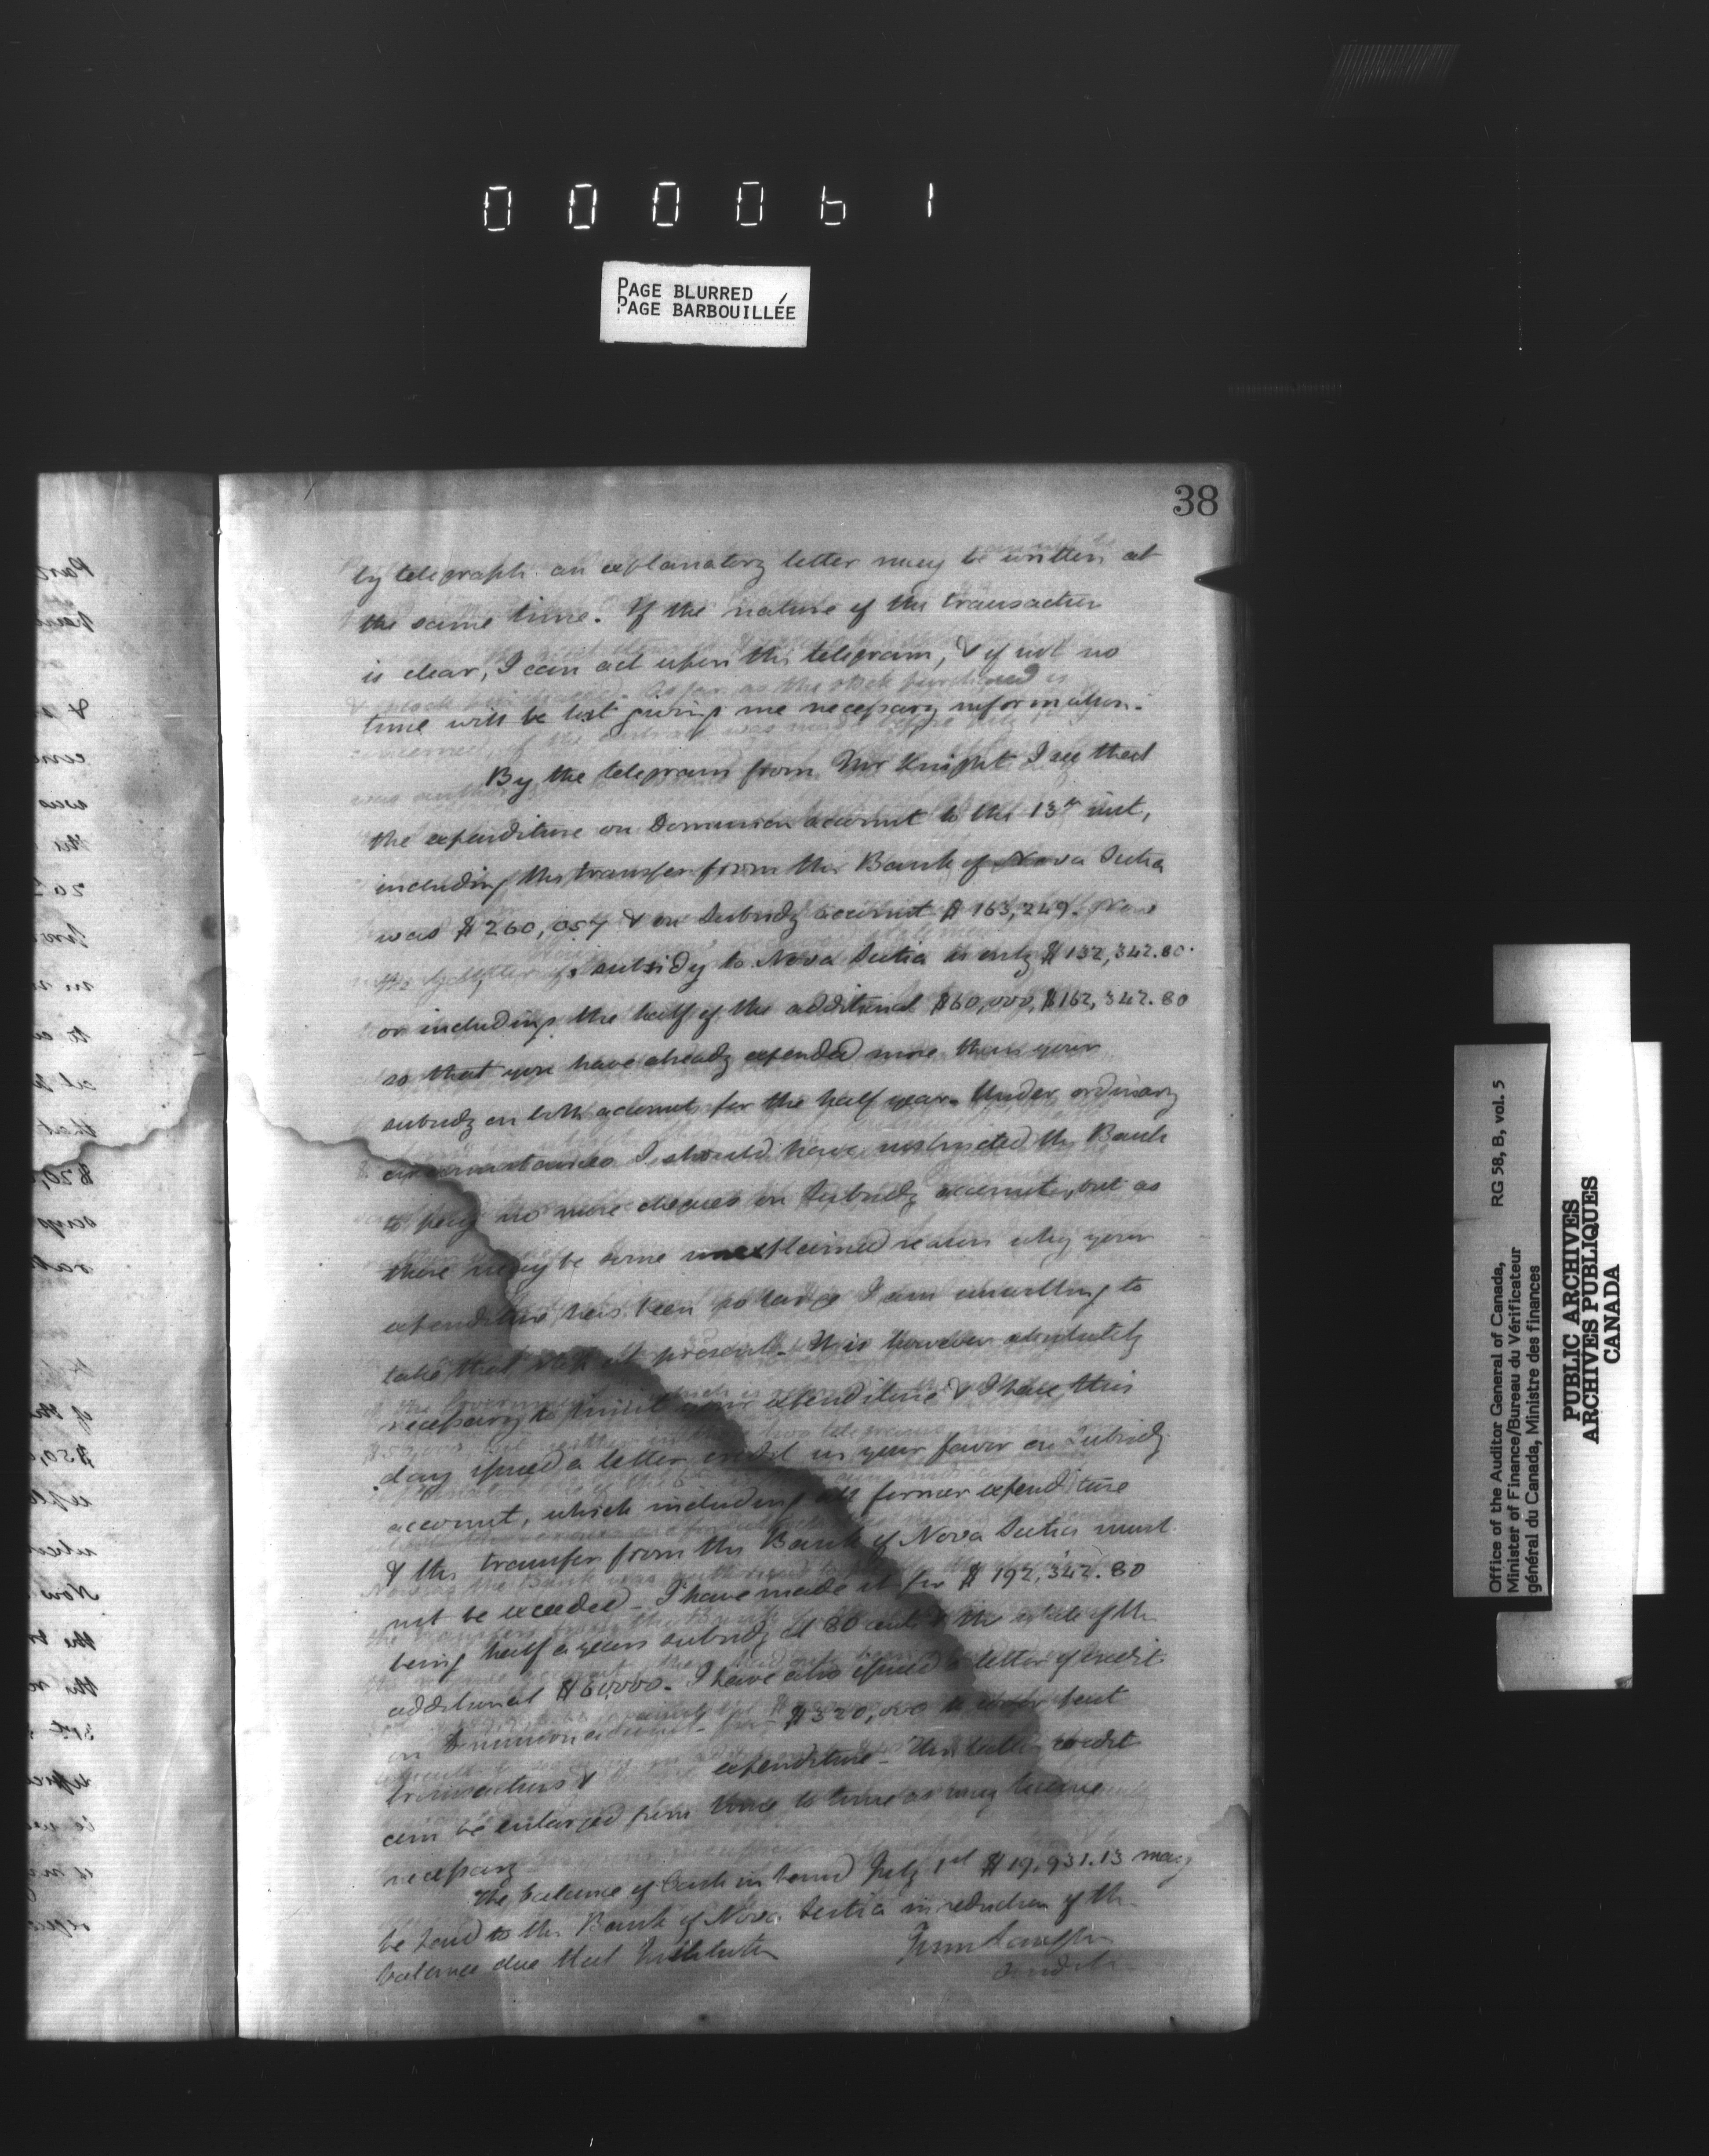 000061
PAGE BLURRED
PAGE BARBOUILLÉE
38
by telegraph an explanatory letter may be written at
the same time. If the nature of the transaction
is clear, I can act upon the telegram, & if not no
time will be lost giving me necessary information.
By the telegram from Mr Knight I see that
the expenditure on Dominion account to the 13th inst,
including the transfer from the Bank of Nova Scotia
was $260,057 & on Subsidy account $163,249. Now
the subsidy to Nova Scotia is only $132,342.80
or including the half of the additional $60,000, $162,342.80
so that you have already expended more than your
subsidy on both accounts for the half year. Under ordinary
circumstances I should have instructed the Bank
to pay no more cheques on Subsidy account, but as
there may be some unexplained reason why your
expenditure has been so large I am unwilling to
take that step at present. It is however absolutely
necessary to limit your expenditure & I have this
day issued a letter credit in your favor on Subsidy
account, which including all former expenditure
& the transfer from the Bank of Nova Scotia must
not be exceeded - I have made it for $192,342.80
being half a years subsidy at 80 cents & the whole of the
additional $60,000. I have also issued a letter of Credit
on Dominion account for $320,000 to cover past
transactions & expenditure - This letter credit
can be enlarged from time to time as may become
necessary
The balance of Cash in hand July 1st $19,931.13 may
be paid to the Bank of Nova Scotia in reduction of the
balance due that Institution
John Langton
Auditor
Office of the Auditor General of Canada, RG 58, B, vol. 5
Minister of Finance/Bureau du Vérificateur
général du Canada, Ministre des finances
PUBLIC ARCHIVES
ARCHIVES PUBLIQUES
CANADA